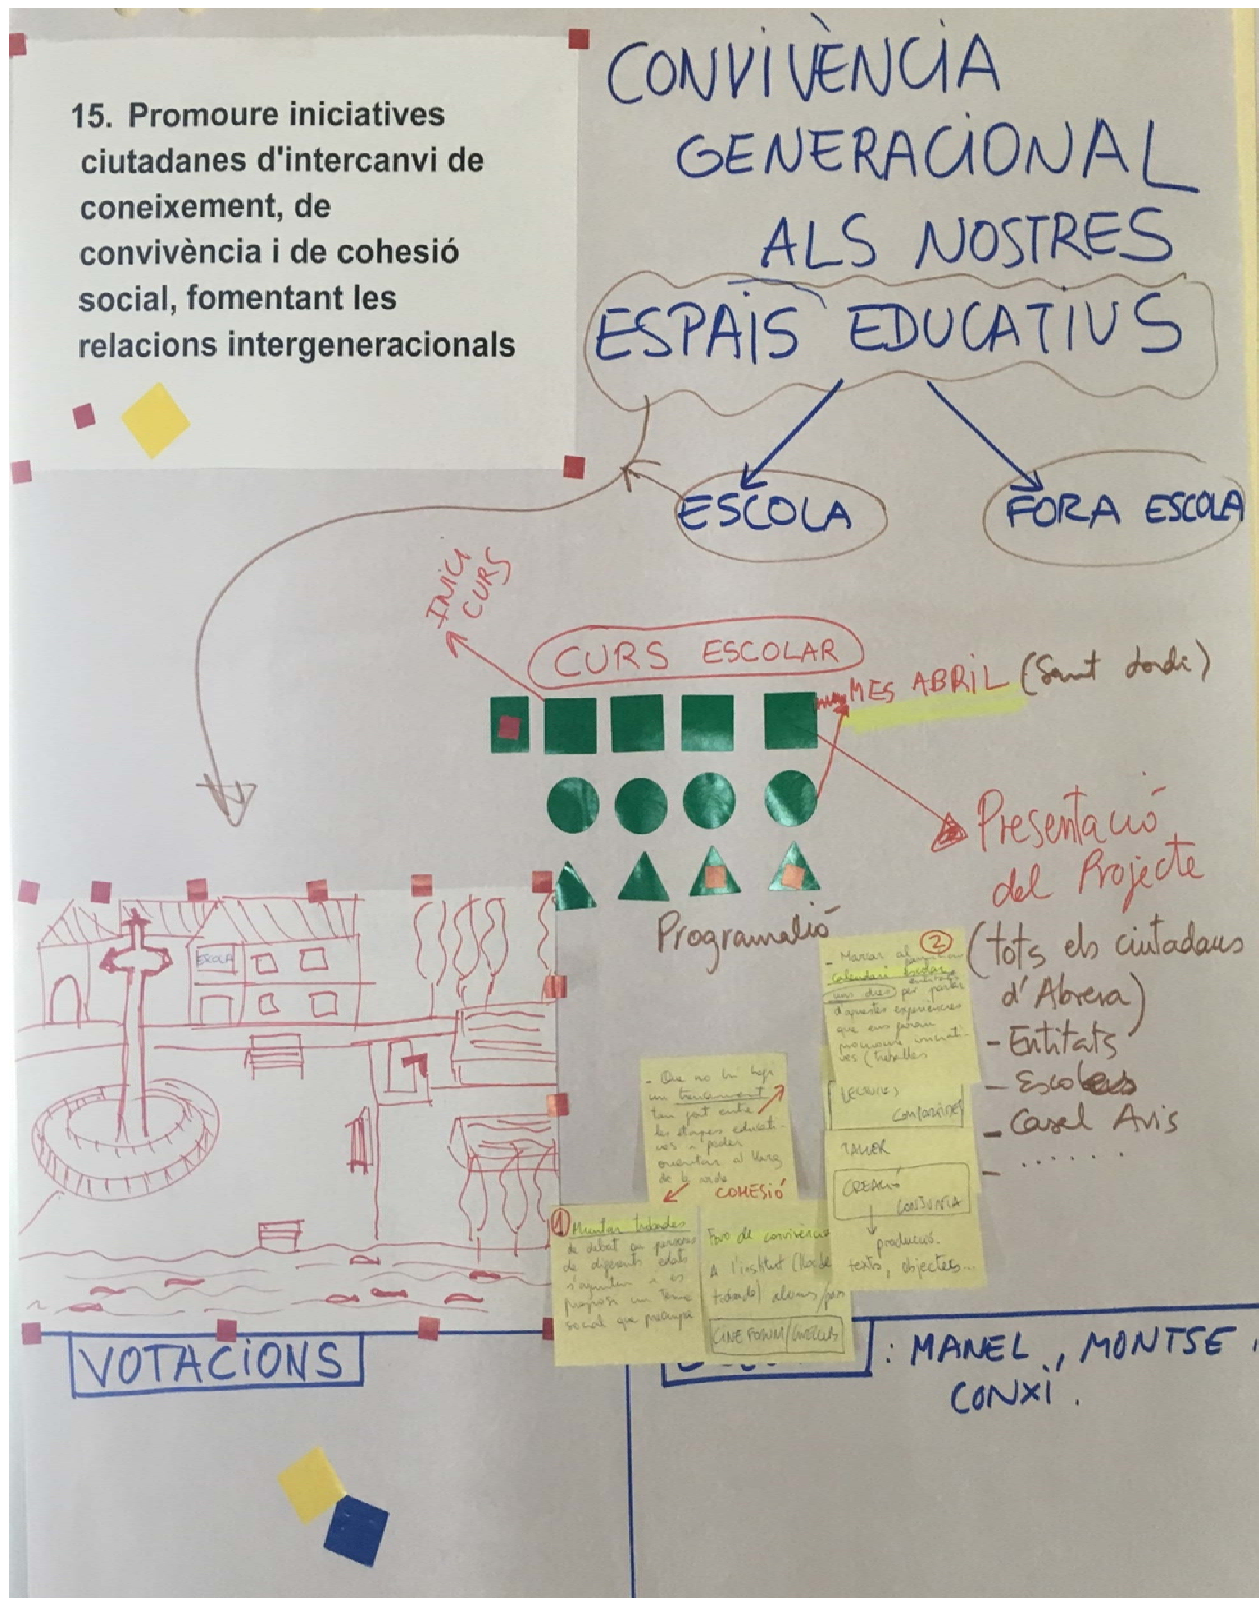 15. Promoure iniciatives
ciutadanes d'intercanvi de
coneixement, de
convivència i de cohesió
social, fomentant les
relacions intergeneracionals
CONVIVÈNCIA
GENERACIONAL
ALS NOSTRES
ESPAIS EDUCATIUS
ESCOLA
FORA ESCOLA
INICI
CURS
CURS ESCOLAR
MES ABRIL (Sant Jordi)
Presentació
del Projecte
(tots els ciutadans
d'Abrera)
- Entitats
- Escoles
- Casal Avis
- .......
Programació
ESCOLA
2
- Marcar al
calendari escolar
uns dies per
d'aquestes experiències
que ens
LECTURES
COMPARTIDES
TALLER
CREACIÓ
CONJUNTA
producció.
texts, objectes...
- Que no hi hagi
un trencament
tan fort entre
les etapes educati-
ves i poder
orientar al llarg
de la vida
COHESIÓ
1 Muntar trobades
de debat on persones
de diferents edats
s'ajuntin i es
proposi un tema
social que preocupa
Fòrum de convivència
A l'institut
CINE FORUM
VOTACIONS
: MANEL, MONTSE,
CONXI.